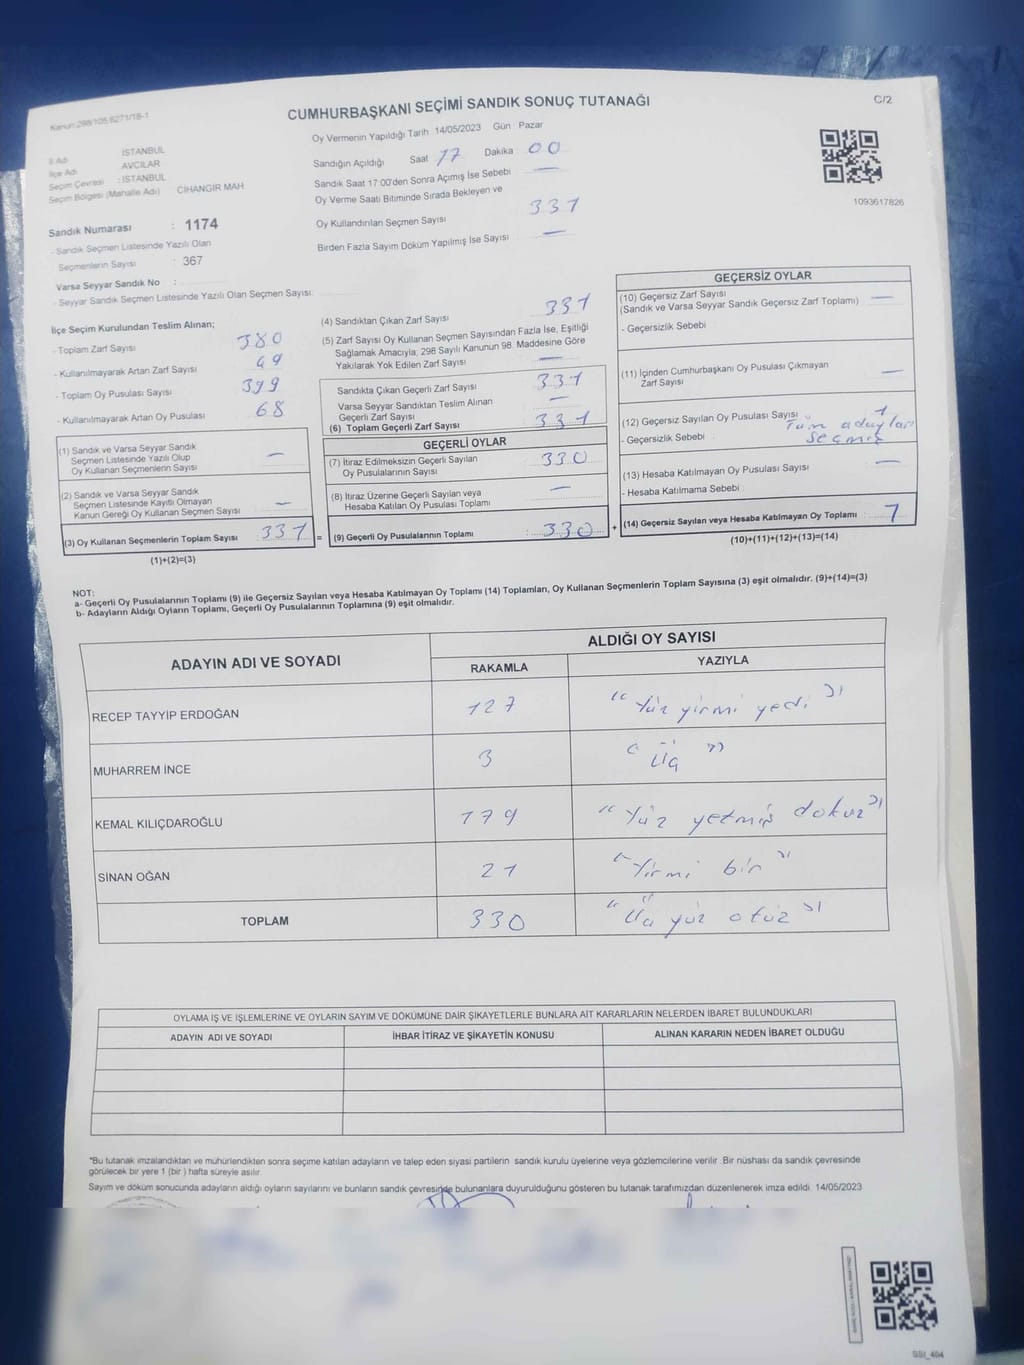 Kanun:298/105,6271/18-1
CUMHURBAŞKANI SEÇİMİ SANDIK SONUÇ TUTANAĞI
C/2
Oy Vermenin Yapıldığı Tarih 14/05/2023 Gün : Pazar
İl Adı : İSTANBUL
İlçe Adı : AVCILAR
Seçim Çevresi : İSTANBUL
Seçim Bölgesi (Mahalle Adı) CİHANGİR MAH
Sandığın Açıldığı Saat 17 Dakika 00
Sandık Saat 17:00'den Sonra Açımış İse Sebebi —
Oy Verme Saati Bitiminde Sırada Bekleyen ve
Oy Kullandırılan Seçmen Sayısı 331
Birden Fazla Sayım Döküm Yapılmış İse Sayısı —
1093617826
Sandık Numarası : 1174
- Sandık Seçmen Listesinde Yazılı Olan
Seçmenlerin Sayısı : 367
Varsa Seyyar Sandık No :
- Seyyar Sandık Seçmen Listesinde Yazılı Olan Seçmen Sayısı:
İlçe Seçim Kurulundan Teslim Alınan;
- Toplam Zarf Sayısı 380
- Kullanılmayarak Artan Zarf Sayısı 49
- Toplam Oy Pusulası Sayısı 399
- Kullanılmayarak Artan Oy Pusulası 68
(1) Sandık ve Varsa Seyyar Sandık
Seçmen Listesinde Yazılı Olup
Oy Kullanan Seçmenlerin Sayısı —
(2) Sandık ve Varsa Seyyar Sandık
Seçmen Listesinde Kayıtlı Olmayan
Kanun Gereği Oy Kullanan Seçmen Sayısı —
(3) Oy Kullanan Seçmenlerin Toplam Sayısı : 331 =
(1)+(2)=(3)
(4) Sandıktan Çıkan Zarf Sayısı 331
(5) Zarf Sayısı Oy Kullanan Seçmen Sayısından Fazla İse, Eşitliği
Sağlamak Amacıyla; 298 Sayılı Kanunun 98. Maddesine Göre
Yakılarak Yok Edilen Zarf Sayısı —
Sandıkta Çıkan Geçerli Zarf Sayısı 331
Varsa Seyyar Sandıktan Teslim Alınan
Geçerli Zarf Sayısı —
(6) Toplam Geçerli Zarf Sayısı 331
GEÇERLİ OYLAR
(7) İtiraz Edilmeksizin Geçerli Sayılan
Oy Pusulalarının Sayısı 330
(8) İtiraz Üzerine Geçerli Sayılan veya
Hesaba Katılan Oy Pusulası Toplamı —
(9) Geçerli Oy Pusulalarının Toplamı : 330 +
GEÇERSİZ OYLAR
(10) Geçersiz Zarf Sayısı
(Sandık ve Varsa Seyyar Sandık Geçersiz Zarf Toplamı) —
- Geçersizlik Sebebi
(11) İçinden Cumhurbaşkanı Oy Pusulası Çıkmayan
Zarf Sayısı —
(12) Geçersiz Sayılan Oy Pusulası Sayısı 1
- Geçersizlik Sebebi : Tüm adayları
seçmiş
(13) Hesaba Katılmayan Oy Pusulası Sayısı —
- Hesaba Katılmama Sebebi :
(14) Geçersiz Sayılan veya Hesaba Katılmayan Oy Toplamı 1
(10)+(11)+(12)+(13)=(14)
NOT:
a- Geçerli Oy Pusulalarının Toplamı (9) ile Geçersiz Sayılan veya Hesaba Katılmayan Oy Toplamı (14) Toplamları, Oy Kullanan Seçmenlerin Toplam Sayısına (3) eşit olmalıdır. (9)+(14)=(3)
b- Adayların Aldığı Oyların Toplamı, Geçerli Oy Pusulalarının Toplamına (9) eşit olmalıdır.
ADAYIN ADI VE SOYADI
ALDIĞI OY SAYISI
RAKAMLA YAZIYLA
RECEP TAYYİP ERDOĞAN 127 "Yüz yirmi yedi"
MUHARREM İNCE 3 "Üç"
KEMAL KILIÇDAROĞLU 179 "Yüz yetmiş dokuz"
SİNAN OĞAN 21 "Yirmi bir"
TOPLAM 330 "Üç yüz otuz"
OYLAMA İŞ VE İŞLEMLERİNE VE OYLARIN SAYIM VE DÖKÜMÜNE DAİR ŞİKAYETLERLE BUNLARA AİT KARARLARIN NELERDEN İBARET BULUNDUKLARI
ADAYIN ADI VE SOYADI İHBAR İTİRAZ VE ŞİKAYETİN KONUSU ALINAN KARARIN NEDEN İBARET OLDUĞU
*Bu tutanak imzalandıktan ve mühürlendikten sonra seçime katılan adayların ve talep eden siyasi partilerin sandık kurulu üyelerine veya gözlemcilerine verilir. Bir nüshası da sandık çevresinde
görülecek bir yere 1 (bir ) hafta süreyle asılır.
Sayım ve döküm sonucunda adayların aldığı oyların sayılarını ve bunların sandık çevresinde bulunanlara duyurulduğunu gösteren bu tutanak tarafımızdan düzenlenerek imza edildi. 14/05/2023
SSI_404